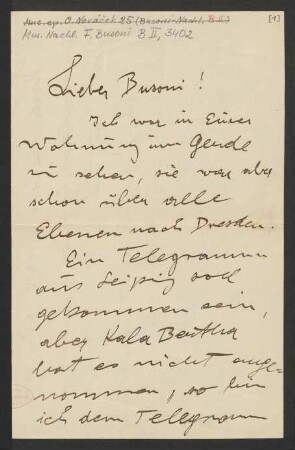 Mus. ep. O. Nováček 25 (Busoni-Nachl. B II)
Mus. Nachl. F. Busoni B II, 3402
[1]
Lieber Busoni!
Ich war in Eurer
Wohnung um Gerda
zu sehen, sie war aber
schon über alle
Ebenen nach Dresden.
Ein Telegramm
aus Leipzig soll
gekommen sein,
aber Kala Beitha
hat es nicht ange-
nommen, so bin
ich dem Telegramm